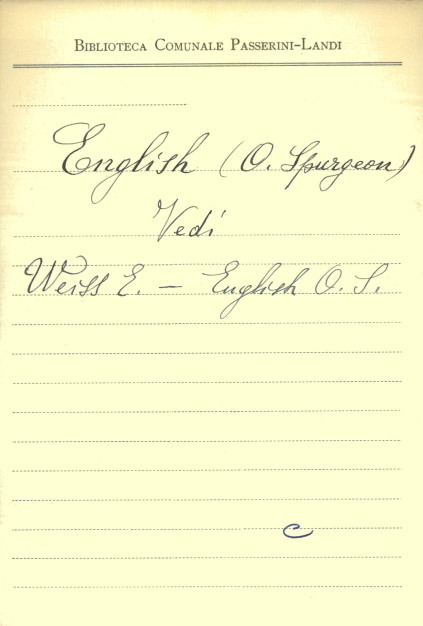 BIBLIOTECA COMUNALE PASSERINI-LANDI
English (O. Spurgeon)
Vedi
Weiss E. — English O. S.
C